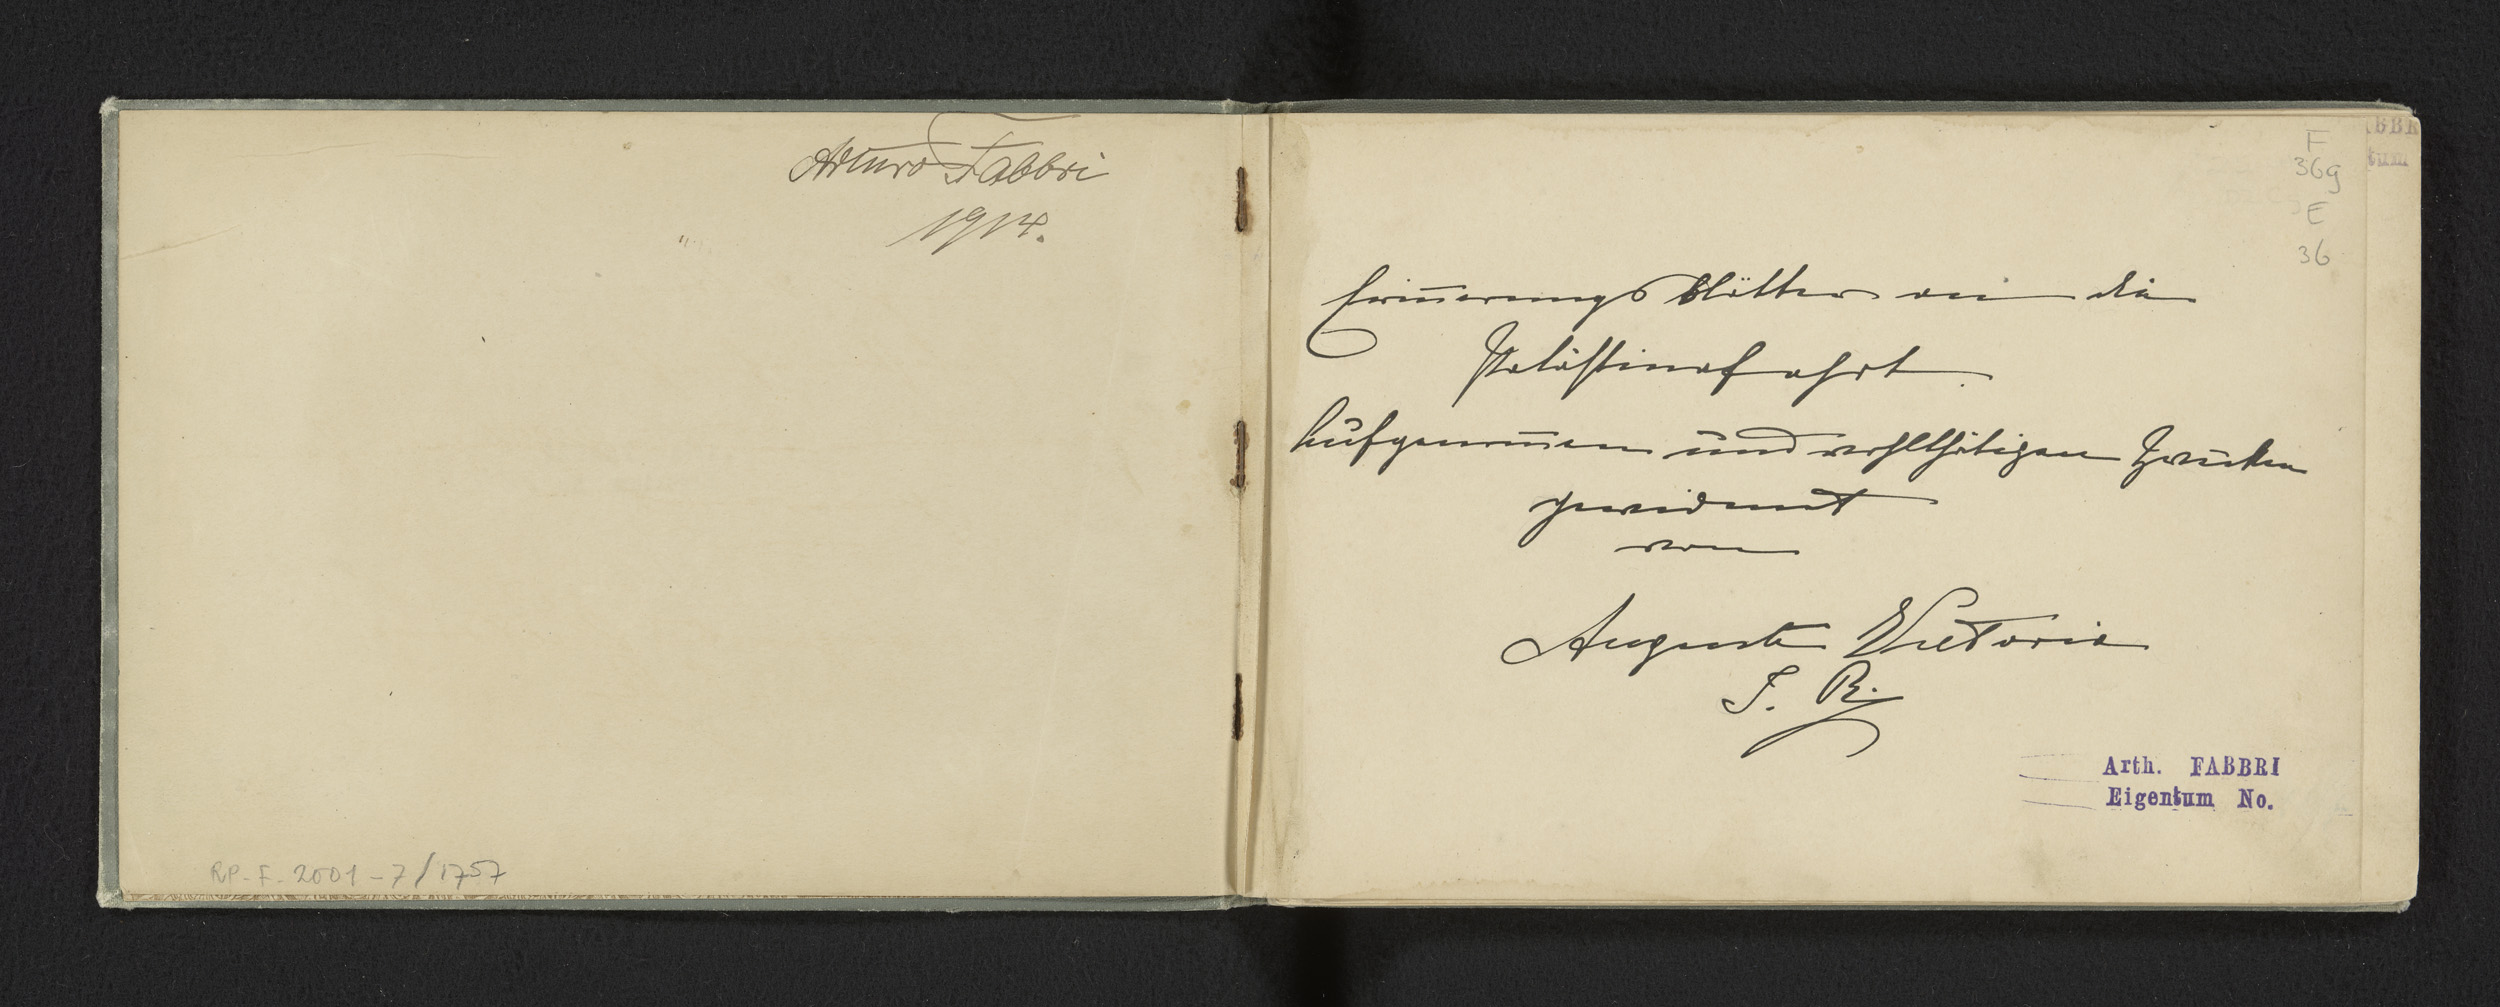 Arturo Fabbri
1914.
RP-F-2001-7/1757
F
36g
E
36
BBR
tum
Erinnerungsblätter an die
Palästinafahrt.
Aufgenommen und wohlthätigen Zwecken
gewidmet
von
Auguste Victoria
I. R.
Arth. FABBRI
Eigentum No.